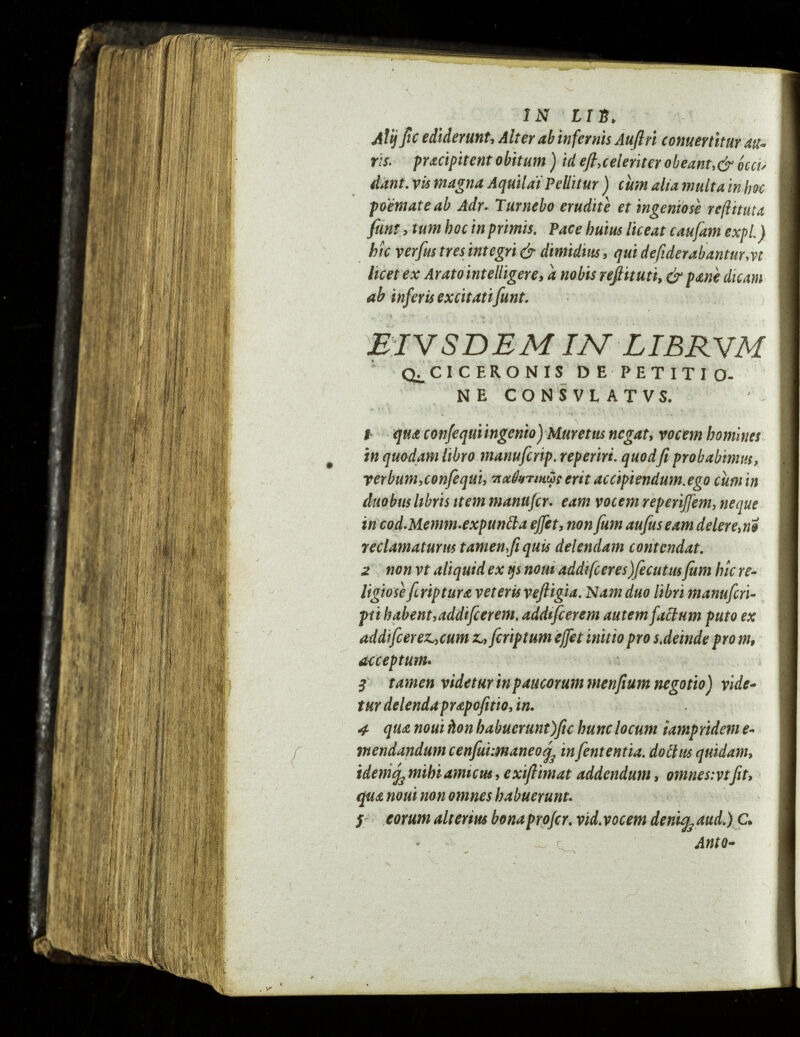 IN LIB.
Alij ſic ediderunt, Alter ab infernis Auſtri conuertitur au-
ris. præcipitent obitum ) id eſt, celeriter obeant, & occi-
dant. vis magna Aquilai Pellitur ) cùm alia multa in hoc
poëmate ab Adr. Turnebo eruditè et ingeniosè reſtituta
ſunt, tum hoc in primis. Pace huius liceat cauſam expl.)
hîc verſus tres integri & dimidius, qui deſiderabantur, vt
licet ex Arato intelligere, à nobis reſtituti, & pænè dicam
ab inferis excitati ſunt.
EIVSDEM IN LIBRVM
Q. CICERONIS DE PETITIO-
NE CONSVLATVS.
1 quæ conſequi ingenio) Muretus negat, vocem homines
in quodam libro manuſcrip. reperiri. quod ſi probabimus,
verbum, conſequi, παθητικῶς erit accipiendum. ego cùm in
duobus libris item manuſcr. eam vocem reperiſſem, neque
in cod. Memm. expuncta eſſet, non ſum auſus eam delere, nō
reclamaturus tamen, ſi quis delendam contendat.
2 non vt aliquid ex ijs noui addiſceres) ſecutus ſum hîc re-
ligiosè ſcripturæ veteris veſtigia. Nam duo libri manuſcri-
pti habent, addiſcerem. addiſcerem autem factum puto ex
addiſcerez, cum z, ſcriptum eſſet initio pro s. deinde pro m,
acceptum.
3 tamen videtur in paucorum menſium negotio) vide-
tur delenda præpoſitio, in.
4 quæ noui non habuerunt) ſic hunc locum iampridem e-
mendandum cenſui: maneoq́; in ſententia. doctus quidam,
idemq́; mihi amicus, exiſtimat addendum, omnes: vt ſit,
quæ noui non omnes habuerunt.
5 eorum alterius bona proſcr. vid. vocem deniq́; aud.) C.
Anto-